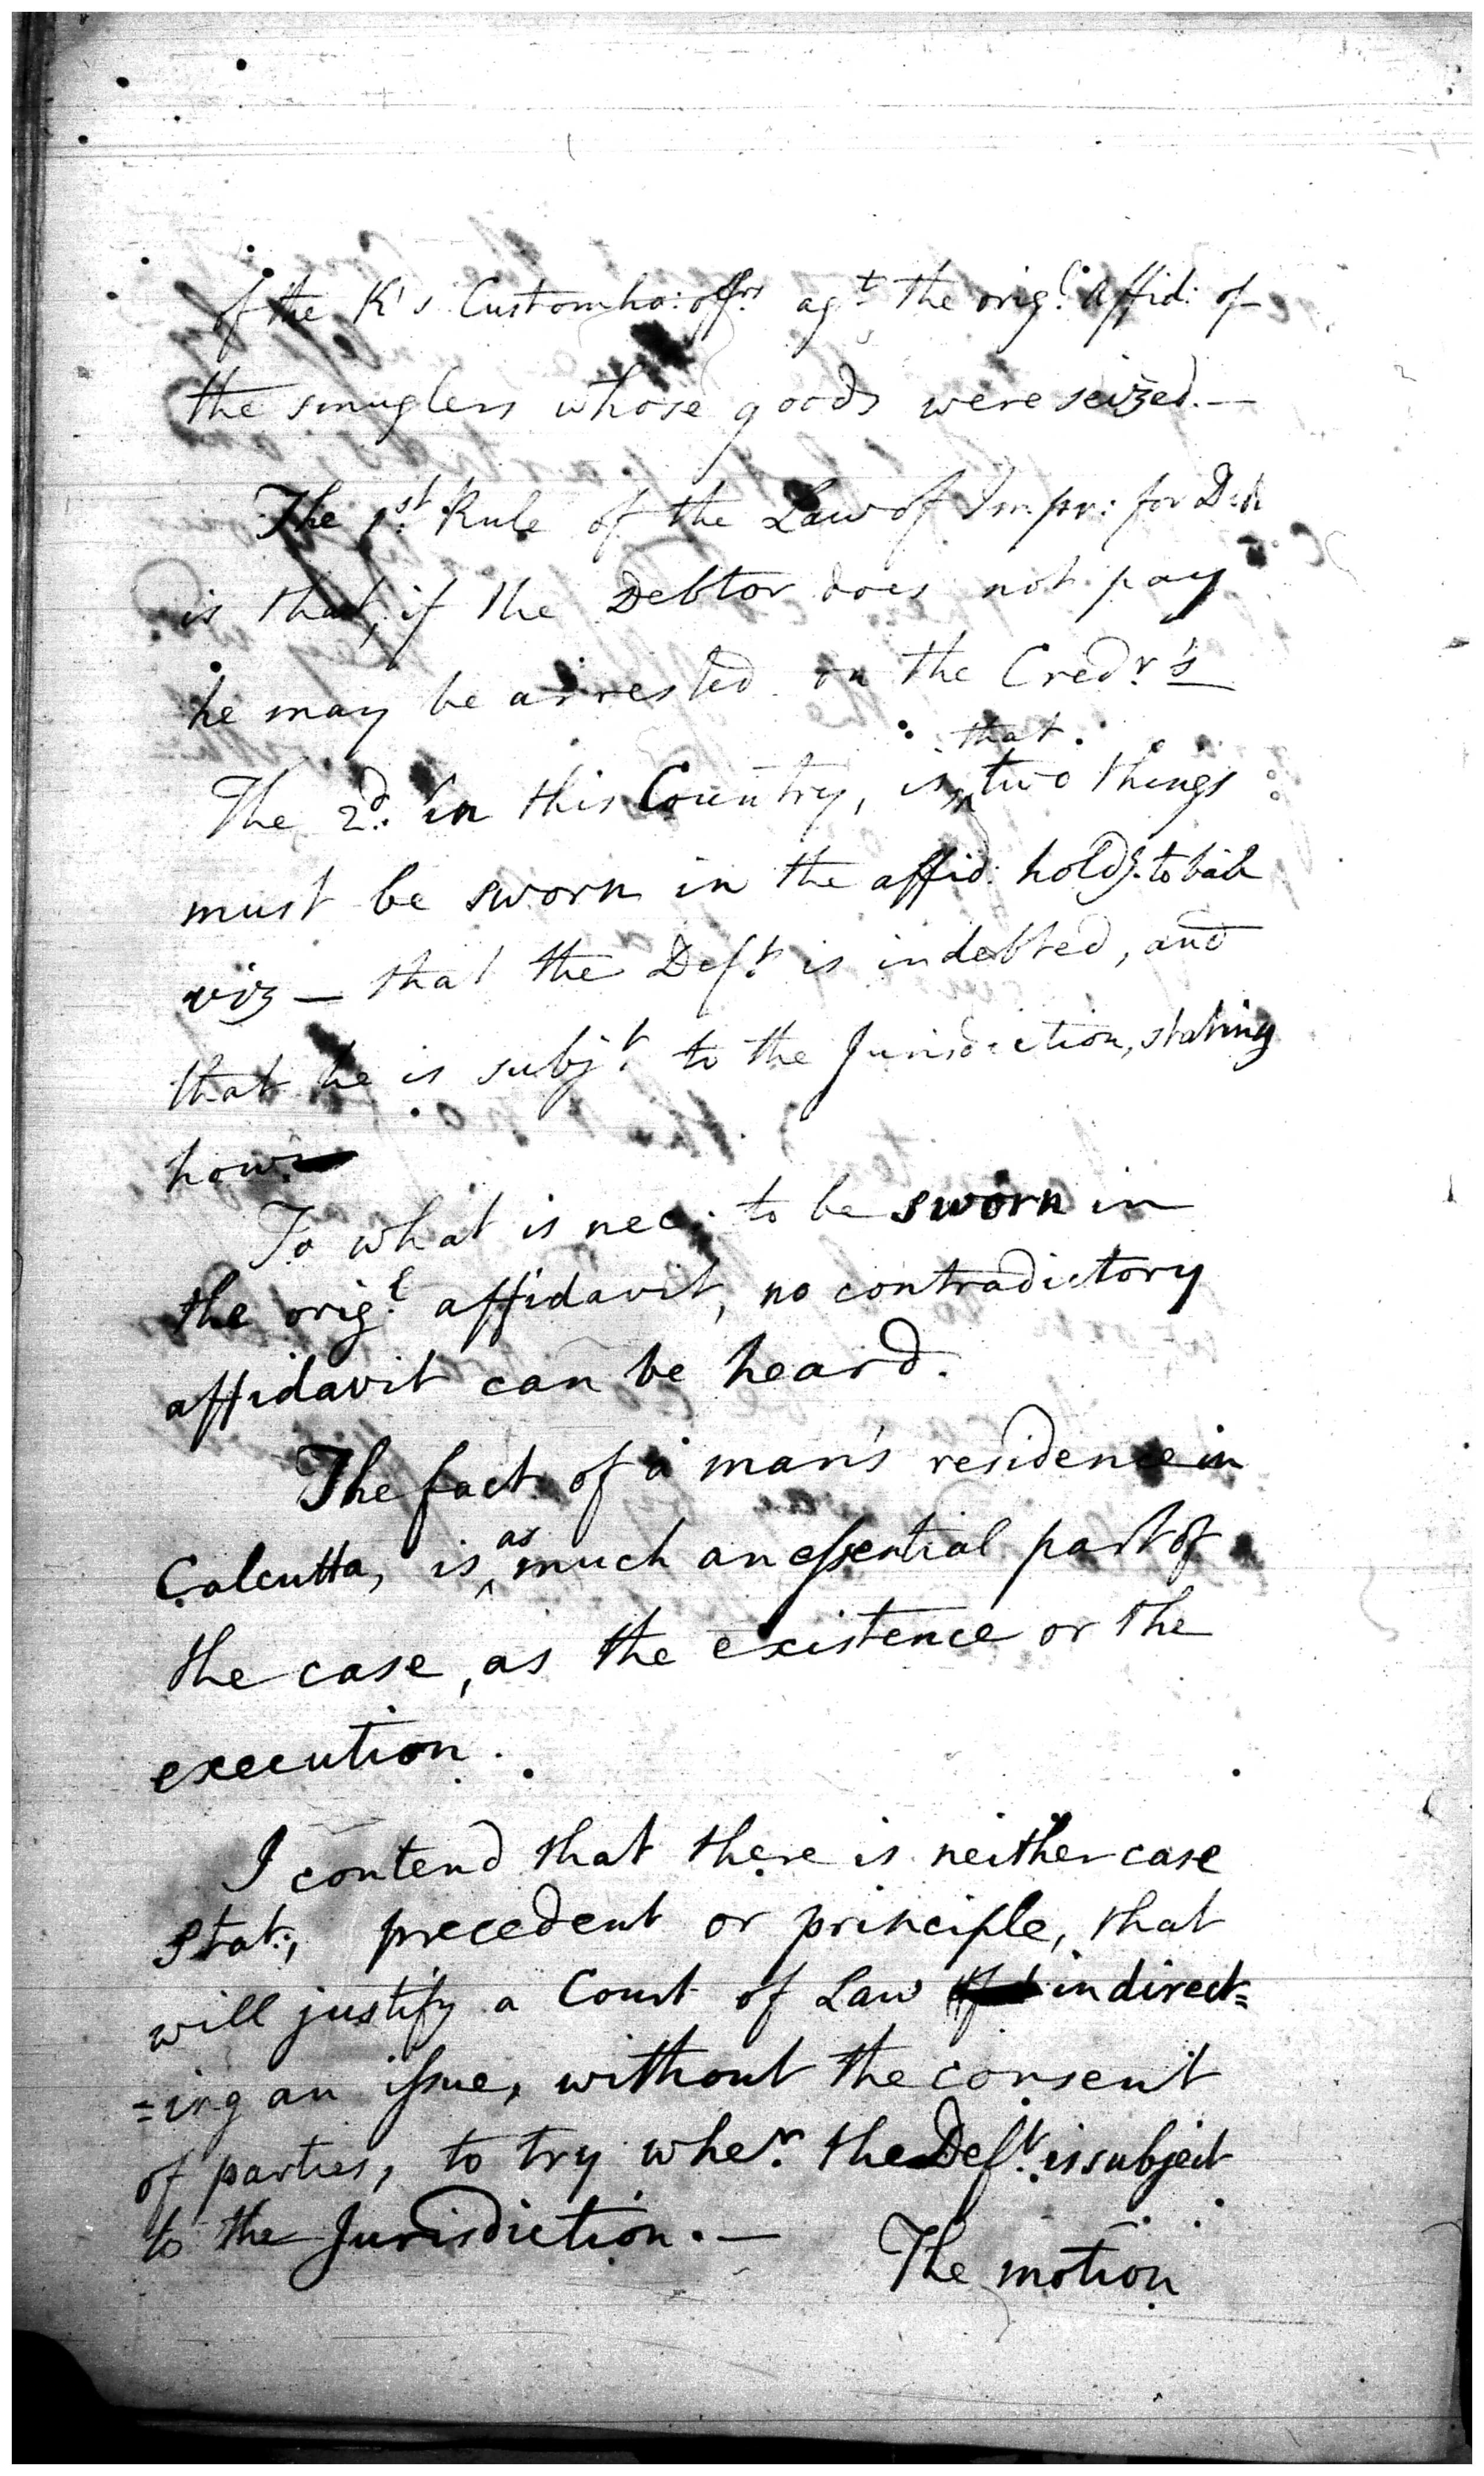 of the K's Customho: offrs agt the origl Affid: of
the smuglers whose goods were seized. —
The 1st Rule of the Law of Impr: for Debt
is that, if the Debtor does not pay
he may be arrested on the Credr's
The 2d. in this Country, is that two things
must be sworn in the affid: holdg. to bail
viz — that the Deft is indebted, and
that he is subjt to the Jurisdiction, stating
how.
To what is nec: to be sworn in
the origl affidavit, no contradictory
affidavit can be heard.
The fact of a man's residence in
Calcutta, is as much an essential part of
the case, as the existence or the
execution.
I contend that there is neither case
Stat:, precedent or principle, that
will justify a Court of Law in direct=
=ing an issue, without the consent
of parties, to try wher. the Deft. is subject
to the Jurisdiction. —
The motion